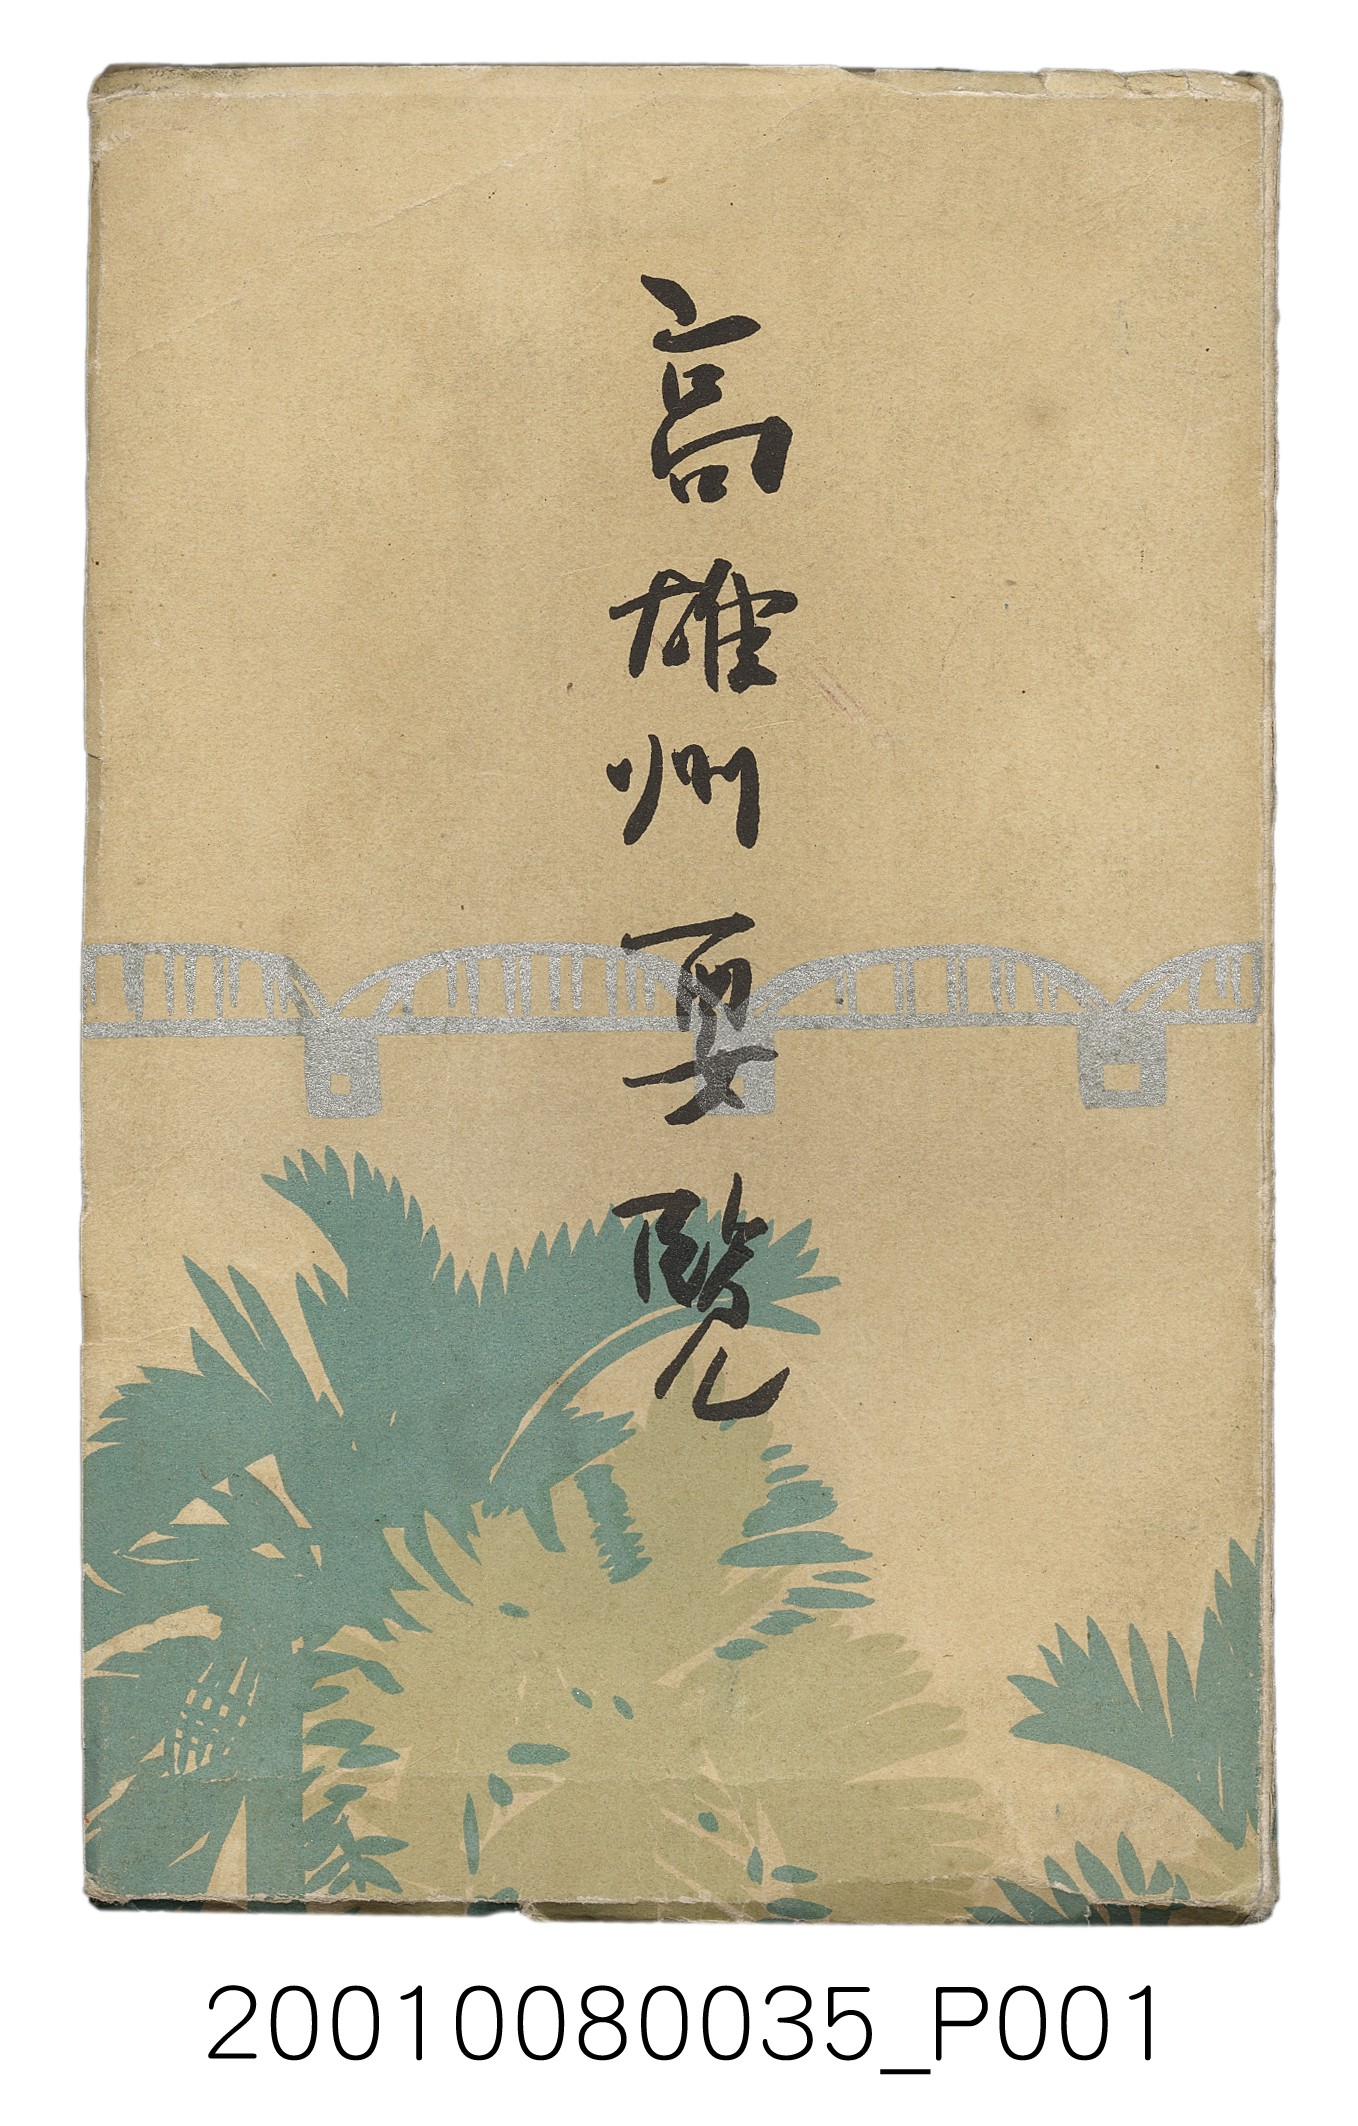 高雄州要覽
20010080035_P001